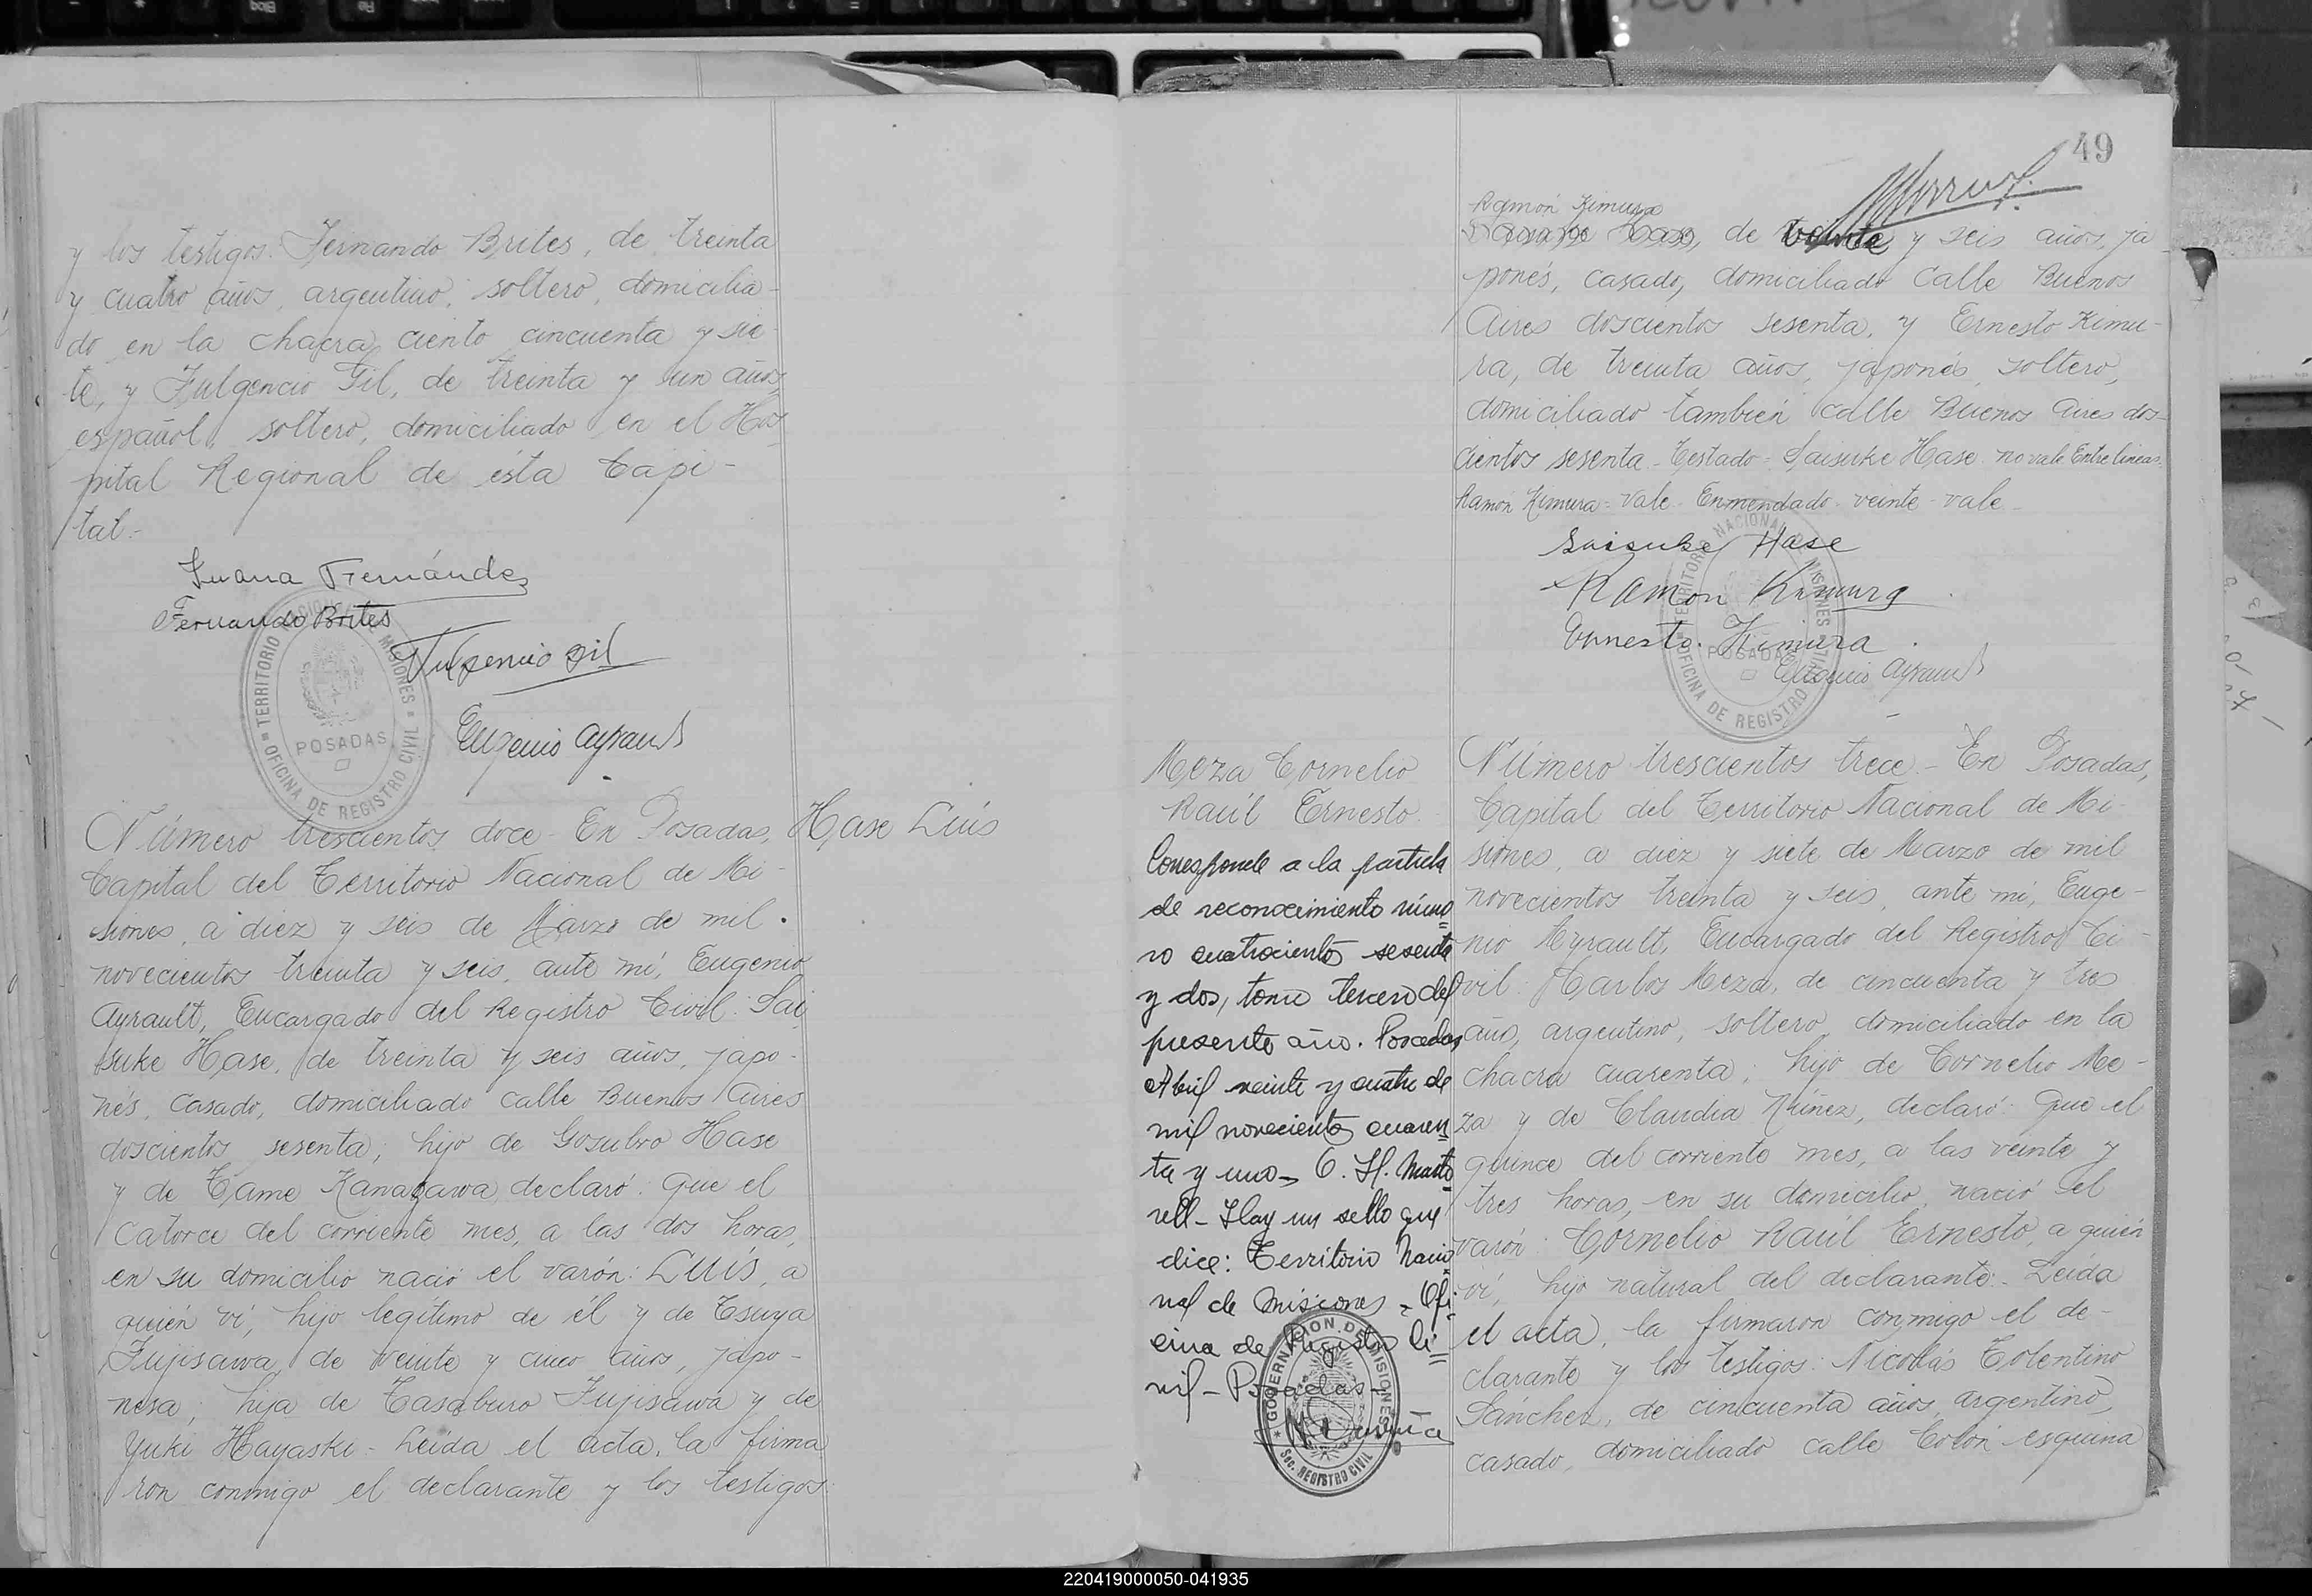 y los testigos: Fernando Brites, de treinta
y cuatro años, argentino, soltero, domicilia-
do en la chacra ciento cincuenta y sie-
te, y Fulgencio Gil, de treinta y un años
español, soltero, domiciliado en el Hos-
pital Regional de ésta Capi-
tal.-
Juana Fernández
Fernando Brites
Fulgencio Gil
Eugenio Ayrault
TERRITORIO NACIONAL DE MISIONES
POSADAS
OFICINA DE REGISTRO CIVIL
Hase Luís
Número trescientos doce- En Posadas,
Capital del Territorio Nacional de Mi-
siones, a diez y seis de Marzo de mil
novecientos treinta y seis, ante mí, Eugenio
Ayrault, Encargado del Registro Civil: Sai
suke Hase, de treinta y seis años, japo-
nés, casado, domiciliado calle Buenos Aires
doscientos sesenta; hijo de Gosubro Hase
y de Came Kanagawa, declaró: Que el
catorce del corriente mes, a las dos horas,
en su domicilio nació el varón: Luís, a
quién ví, hijo legítimo de él y de Tsuya
Fujisawa, de veinte y cinco años, japo-
nesa; hija de Casaburo Fujisawa y de
Yuki Hayaski- Leída el acta, la firma
ron conmigo el declarante y los testigos:
49
Ramón Kimura
de veinte y seis años, ja
ponés, casado, domiciliado calle Buenos
Aires doscientos sesenta, y Ernesto Kimu-
ra, de treinta años, japonés, soltero,
domiciliado también calle Buenos Aires dos-
cientos sesenta- Testado= Saisuke Hase no vale Entrelineas
Ramón Kimura= Vale- Enmendado- veinte- vale-
Saisuke Hase
Ramon Kimura
Ernesto Kimura
Eugenio Ayrault
TERRITORIO NACIONAL MISIONES
POSADAS
OFICINA DE REGISTRO CIVIL
Meza Cornelio
Raúl Ernesto.
Corresponde a la partida
de reconocimiento núme
ro cuatrocientos sesenta
y dos, tomo tercero del
presente año. Posadas
Abril veinte y cuatro de
mil novecientos cuaren
ta y uno- C. H. Marto
rell- Hay un sello que
dice: Territorio Nacio
nal de Misiones - Ofi
cina de Registro Ci
vil- Posadas-
GOBERNACION DE MISIONES
SEC. REGISTRO CIVIL
Número trescientos trece- En Posadas,
Capital del Territorio Nacional de Mi-
siones, a diez y siete de Marzo de mil
novecientos treinta y seis, ante mí, Euge-
nio Ayrault, Encargado del Registro Ci-
vil: Carlos Meza, de cincuenta y tres
años, argentino, soltero, domiciliado en la
chacra cuarenta; hijo de Cornelio Me-
za y de Claudia Núñez, declaró: Que el
quince del corriente mes, a las veinte y
tres horas, en su domicilio, nació el
varón: Cornelio Raúl Ernesto, a quién
ví, hijo natural del declarante- Leída
el acta, la firmaron conmigo el de-
clarante y los testigos: Nicolás Tolentino
Sánchez, de cincuenta años, argentino,
casado, domiciliado calle Colón esquina
220419000050-041935